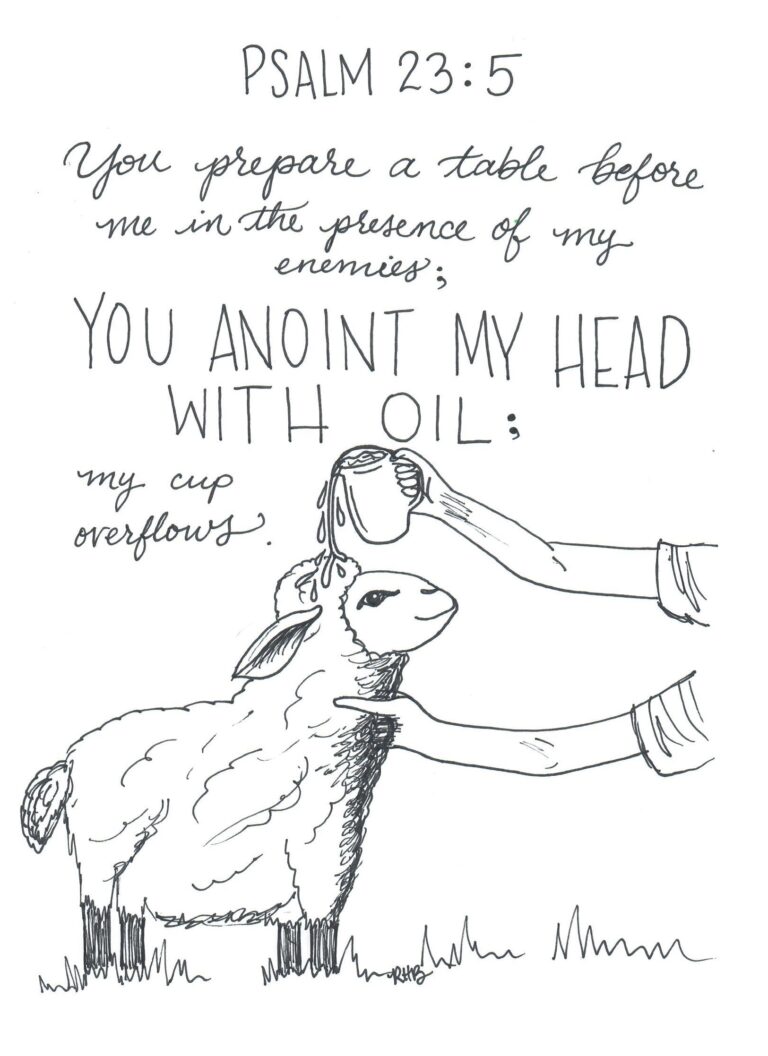 PSALM 23:5
You prepare a table before
me in the presence of my
enemies;
YOU ANOINT MY HEAD
WITH OIL;
my cup
overflows.
RHB